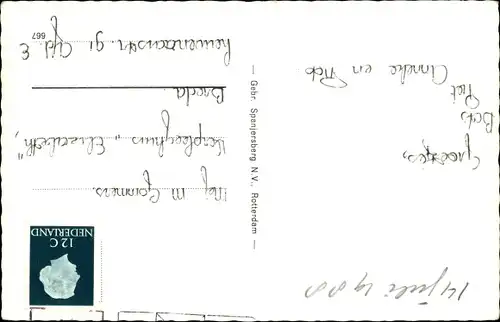 Groetjes,
Bets
Piet
Anneke en Rob
— Gebr. Spanjersberg N.V., Rotterdam —
NEDERLAND
12 C
Mej M Gommers
Verpleeghuis „Elisabeth",
Breda.
Leuvenaarstr. 91 Afd. E
667
14 juli 1988